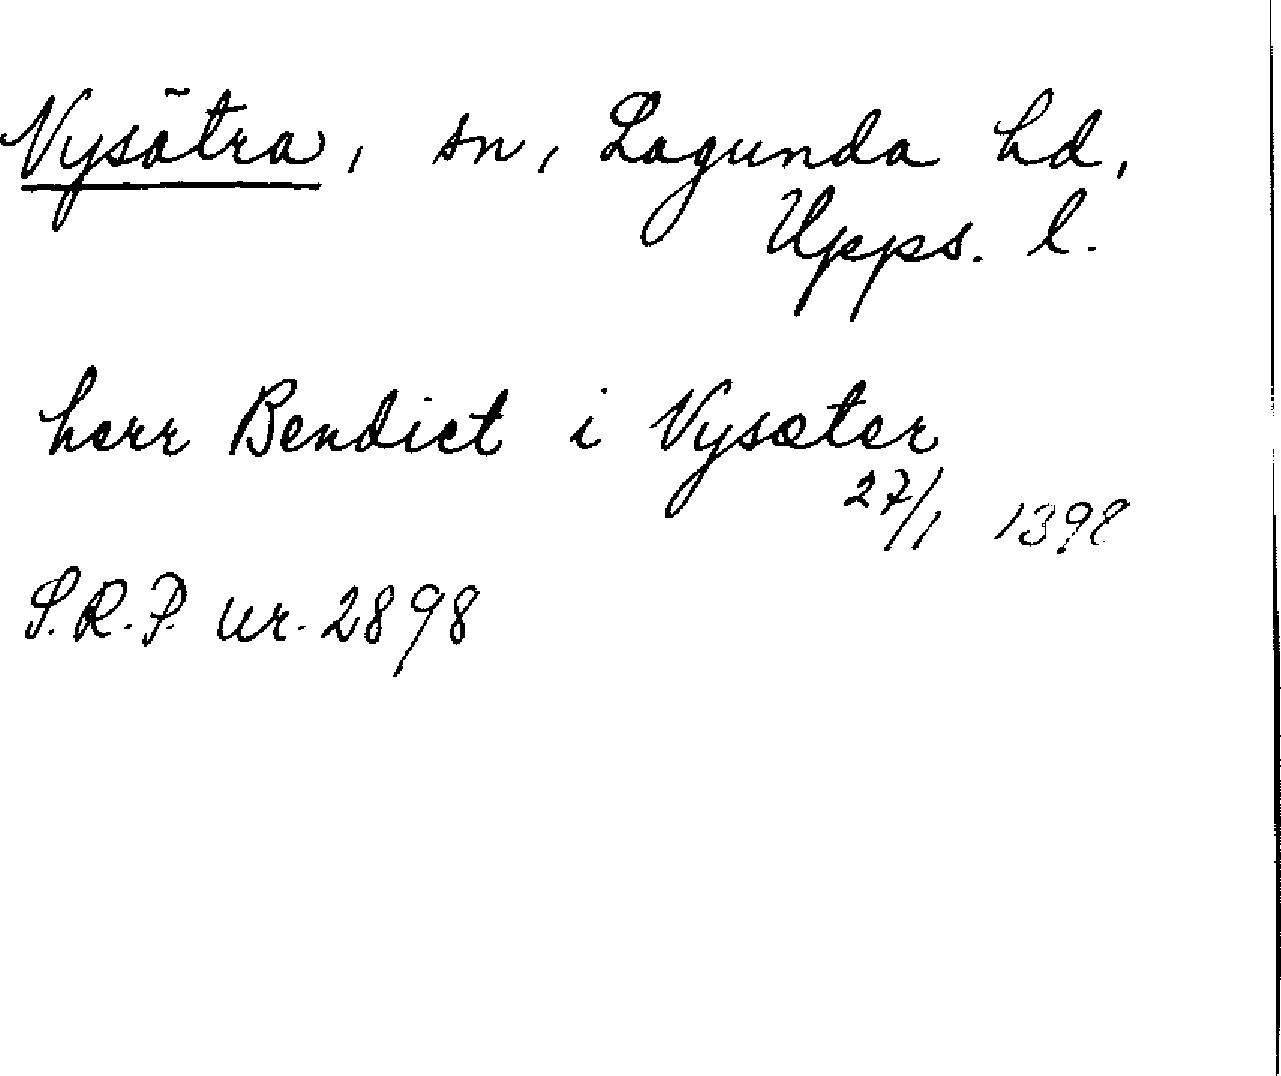 Nysätra, sn, Lagunda hd,
Upps. l.
herr Bendict i Nysæter
27/1 1398
S.R.P. nr. 2898